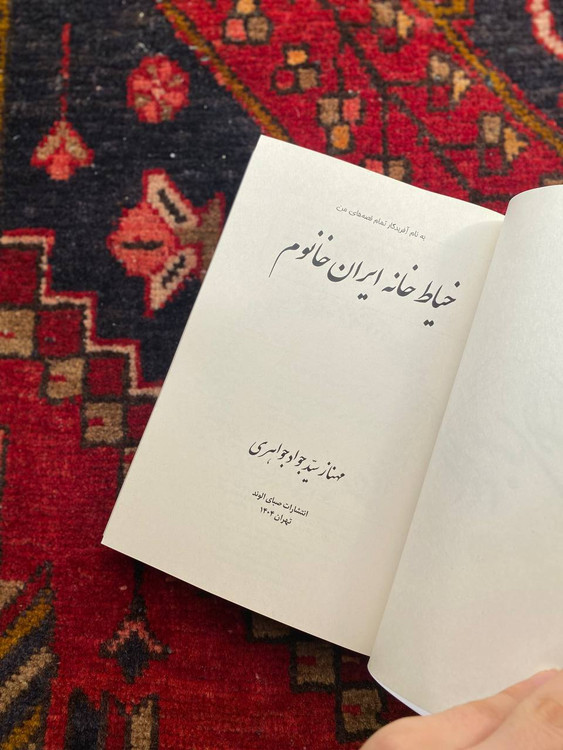 به نام آفریدگار تمام قصه‌های من
خیاط خانه ایران خانوم
مهناز سیّد جواد جواهری
انتشارات صبای الوند
تهران ۱۴۰۴